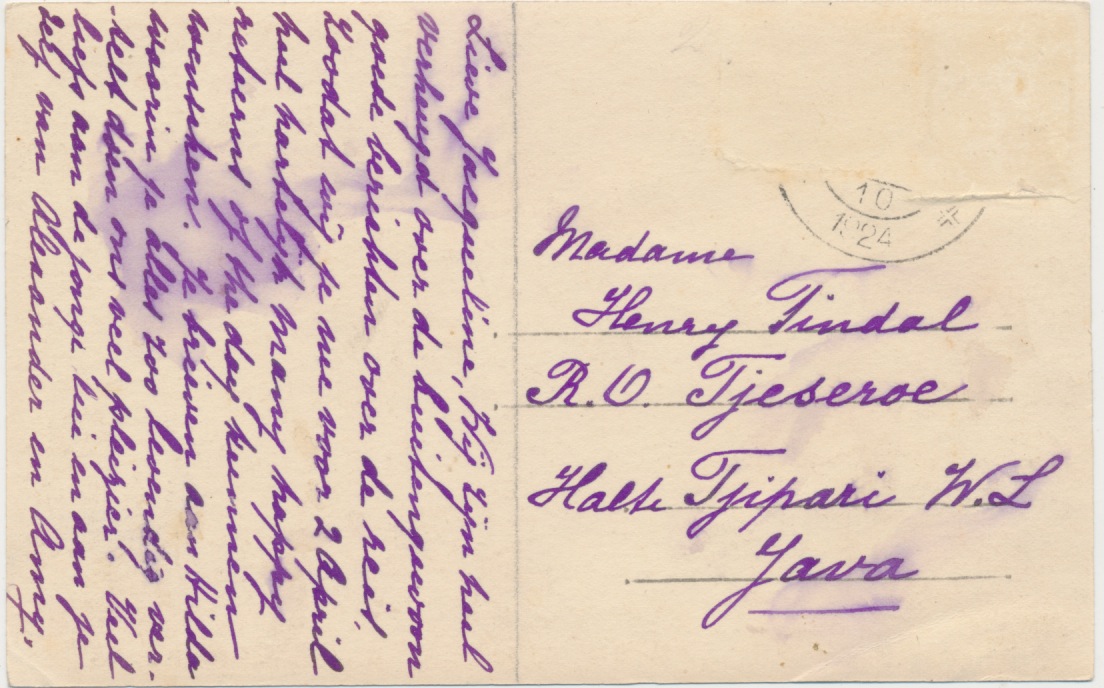 Lieve Jacqueline, Wij zijn heel
verheugd over de buitengewoon
goede berichten over de reis
zoodat wij je nu voor 2 April
heel hartelijk many happy
returns of the day kunnen
wenschen. Je brieven aan Hilda
waarin je alles zoo levendig ver-
telt doen ons veel pleizier. Veel
liefs aan de jonge lui en aan je
zelf van Alexander en Amy.
10
1924
Madame
Henry Tindal
R.O. Tjeseroe
Halte Tjipari W.L
Java